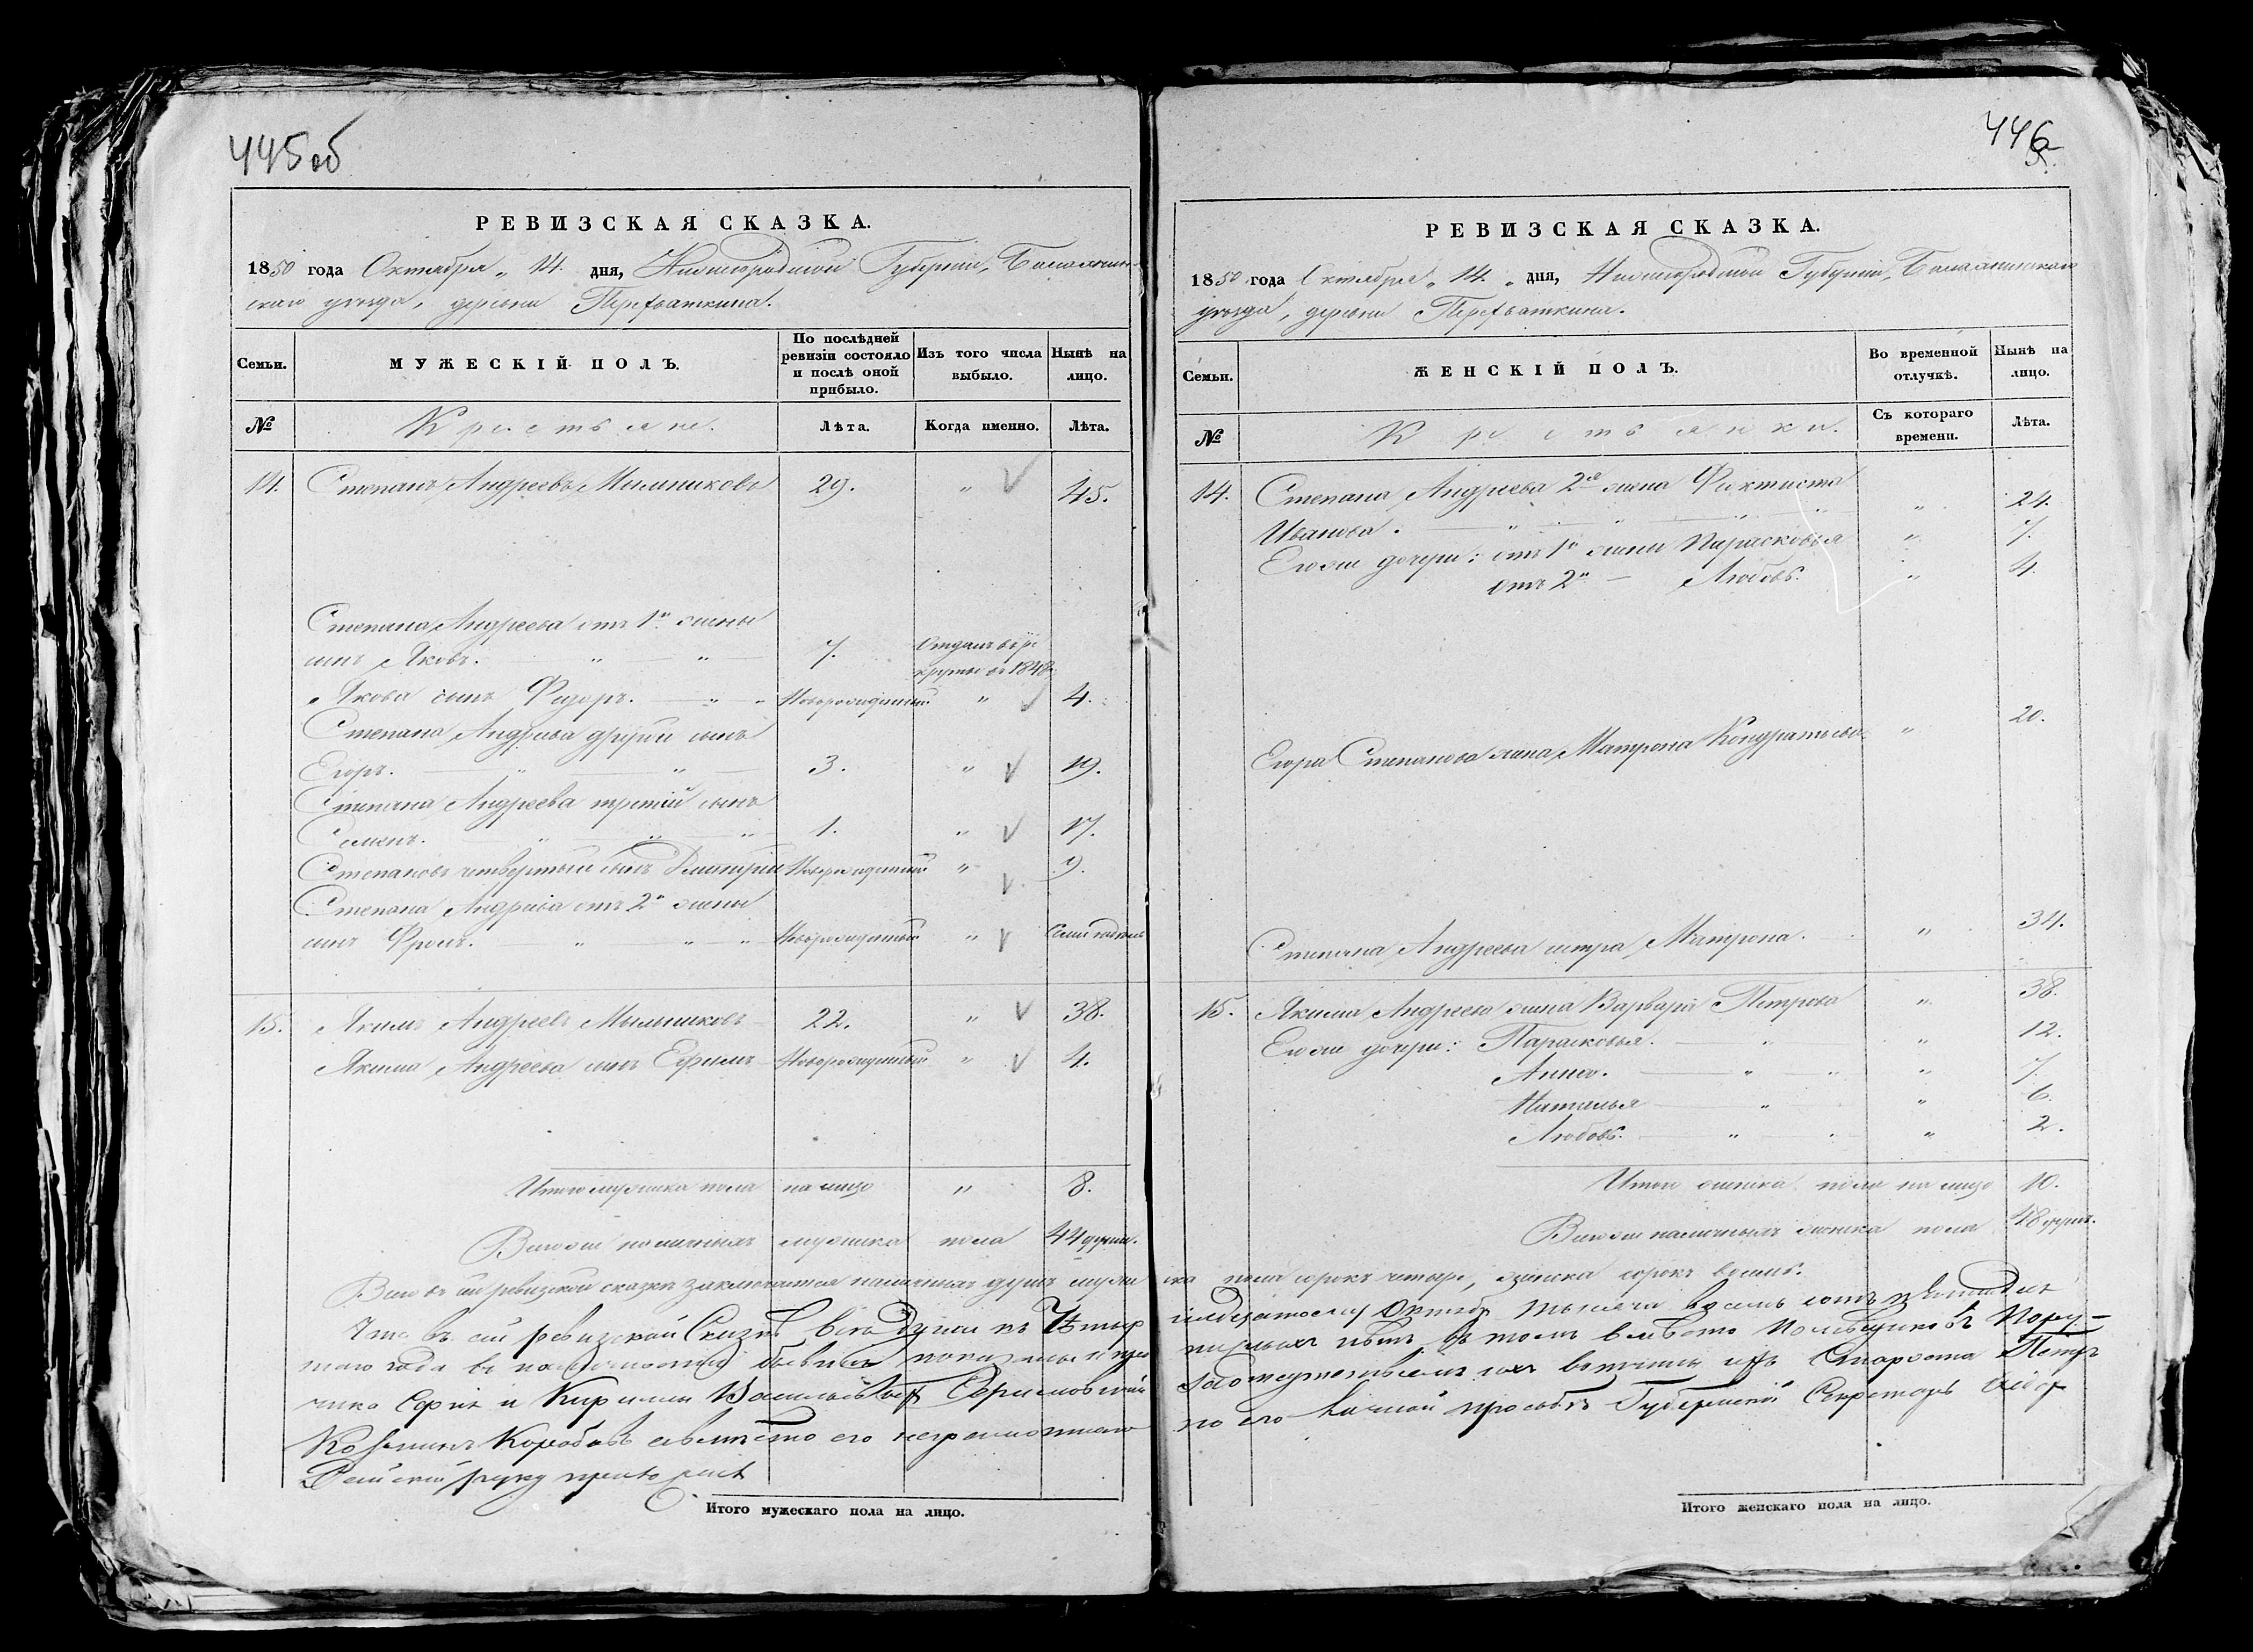 445 об
РЕВИЗСКАЯ СКАЗКА.
1850 года Октября „ 14. дня, Нижегородской Губерніи, Балахнин-
скаго уезда, деревни Перехваткина.
Семьи.
МУЖЕСКІЙ ПОЛЪ.
По послѣдней ревизіи состояло и послѣ оной прибыло.
Изъ того числа выбыло.
Нынѣ на лицо.
№
Крестьяне.
Лѣта.
Когда именно.
Лѣта.
14. Степанъ Андреевъ Мыльниковъ 29. „ 45.
Степана Андреева отъ 1й жены
сынъ Яковъ. „ „ 7. Отданъ въ ре
круты въ 1848
Якова сынъ Федоръ. „ „ Новорожденный „ 4.
Степана Андреева другой сынъ
Егоръ. „ „ 3. „ 19.
Степана Андреева третій сынъ
Семенъ. „ „ „ 1. „ 17.
Степановъ четвертый сынъ Дмитрій Новорожденный „ 9.
Степана Андреева отъ 2й жены
сынъ Фролъ. „ „ „ Новорожденный „
15. Якимъ Андреевъ Мыльниковъ 22. „ 38.
Якима Андреева сынъ Ефимъ Новорожденный „ 4.
Итого мужеска пола на лицо „ 8.
Всего же наличныхъ мужеска пола 44 души.
Всего въ сей ревизской сказке заключается наличныхъ душъ муже
Что въ сей ревизской Сказке все Души къ Четыр
таго года въ
чика Софіи и Кирилы
Коробовъ а вместо его неграмотнаго
руку приложилъ
Итого мужескаго пола на лицо.
446
РЕВИЗСКАЯ СКАЗКА.
1850 года Октября „ 14. „ дня, Нижегородской Губерніи, Балахнинскаго
уезда, деревни Перехваткина.
Семьи.
ЖЕНСКІЙ ПОЛЪ.
Во временной отлучкѣ.
Нынѣ на лицо.
№
Крестьянки.
Съ котораго времени.
Лѣта.
14. Степана Андреева 2я жена Фектиста
Иванова. „ „ „ „ „ 24.
Его же дочери: отъ 1й жены Парасковья „ 7.
отъ 2й — Любовь. „ 4.
Егора Степанова жена Матрона Кондратьева „ 20.
Степана Андреева сестра Матрона. „ 34.
15. Якима Андреева жена Варвара Петрова „ 38.
Его же дочери: Парасковья. „ „ 12.
Анна. „ „ „ 7.
Наталья „ „ 6.
Любовь. „ „ 2.
Итого женска пола на лицо 10.
Всего же наличныхъ женска пола 48 душъ.
ска пола сорокъ четыре, женска сорокъ восемь.
надцатому Октября тысяча восемь сотъ
нетъ въ томъ вместо Помещиковъ Пору-
Староста Петръ
по его личной просьбе Губернской Секретарь
Итого женскаго пола на лицо.